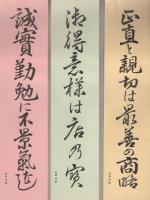 正直と親切は最善の商略
御得意様は店乃寳
誠實勤勉に不景氣なし